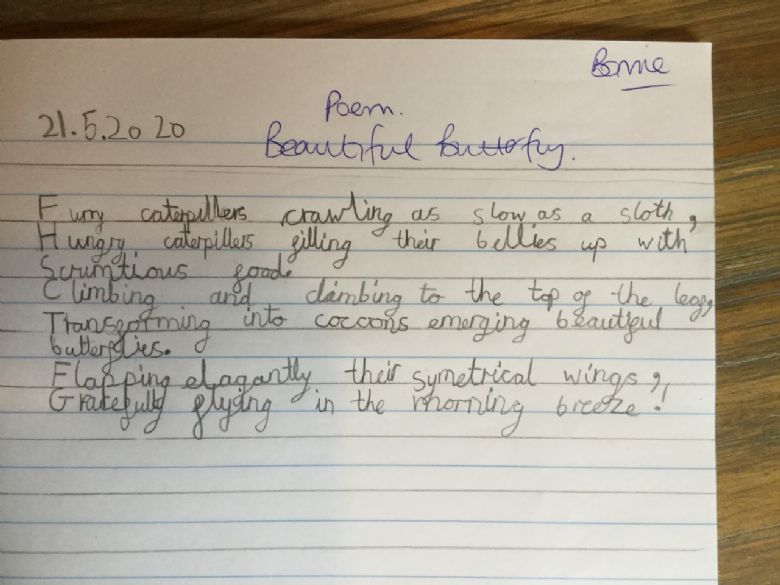 Bonnie
Poem.
21.5.2020
Beautiful butterfly.
Furry caterpillers crawling as slow as a sloth,
Hungry caterpillers filling their bellies up with
Scrumtious food.
Climbing and climbing to the top of the leaf,
Transforming into cocoons emerging beautiful
butterflies.
Flapping elagantly their symetrical wings,
Gratefully flying in the morning breeze!